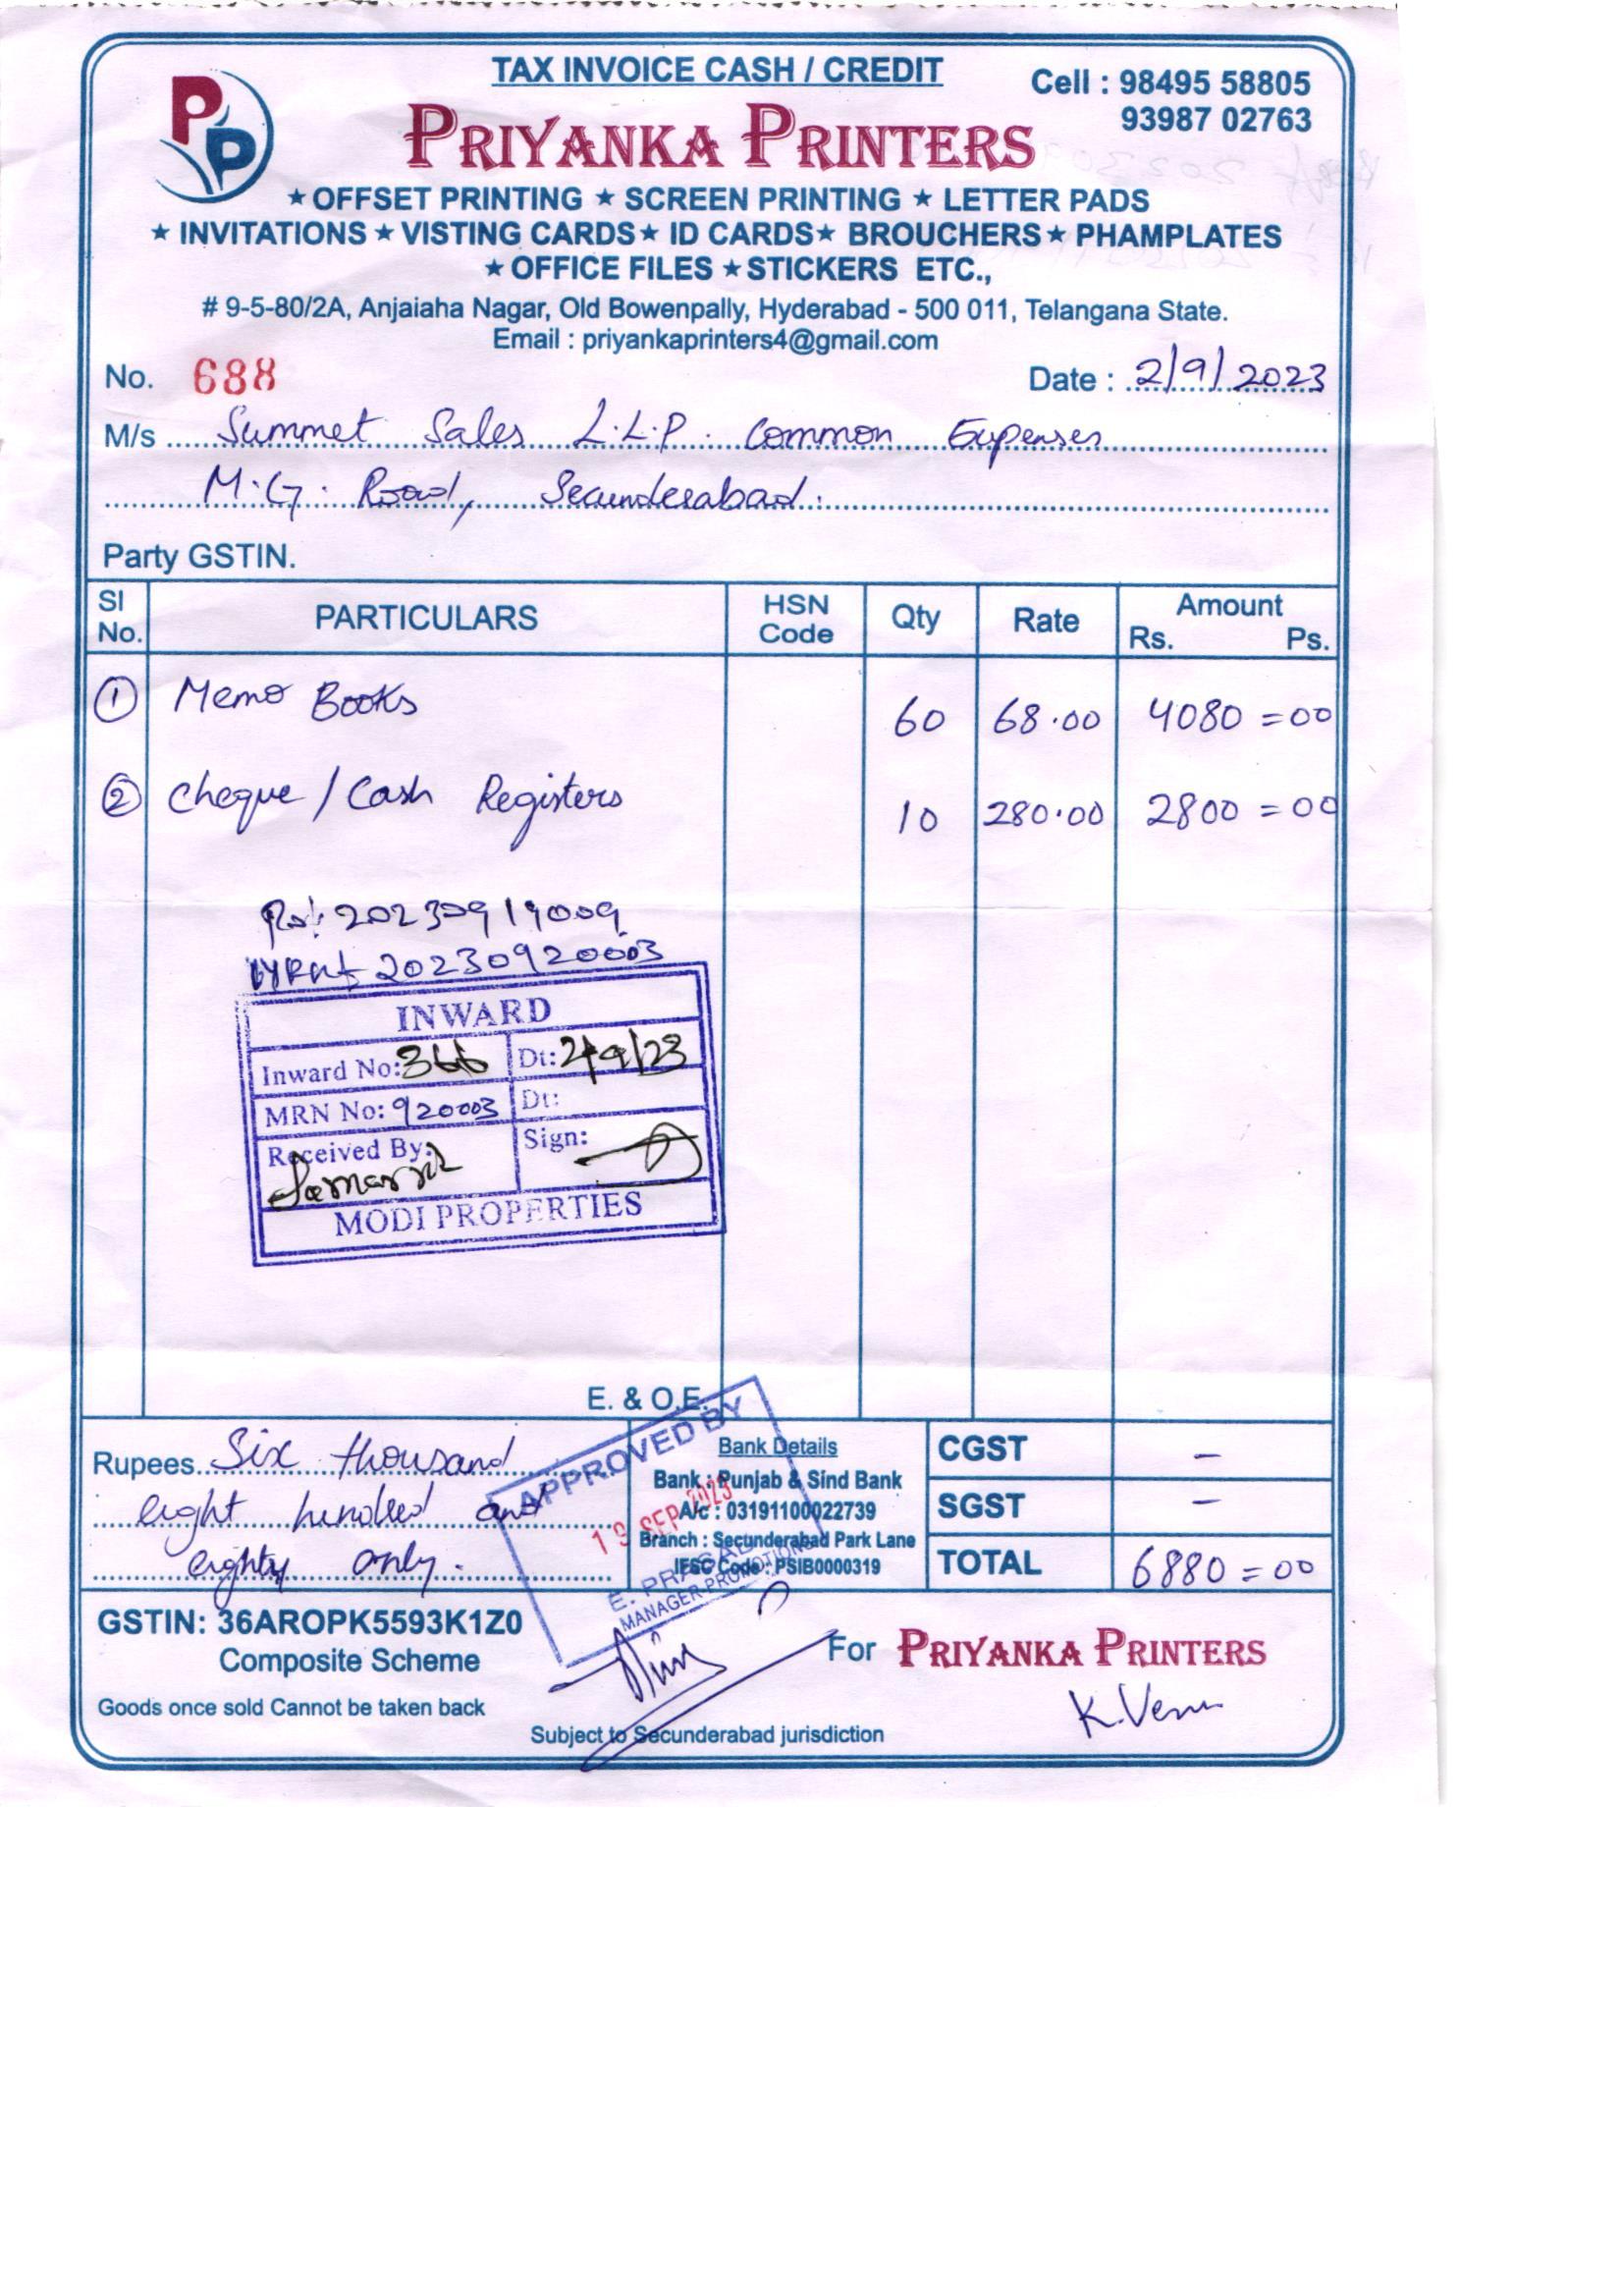 TAX INVOICE CASH / CREDIT
Cell : 98495 58805
93987 02763
PP
PRIYANKA PRINTERS
★ OFFSET PRINTING ★ SCREEN PRINTING ★ LETTER PADS
★ INVITATIONS ★ VISTING CARDS ★ ID CARDS ★ BROUCHERS ★ PHAMPLATES
★ OFFICE FILES ★ STICKERS ETC.,
# 9-5-80/2A, Anjaiaha Nagar, Old Bowenpally, Hyderabad - 500 011, Telangana State.
Email : priyankaprinters4@gmail.com
No. 688 Date : 2/9/2023
M/s Summet Sales L.L.P. Common Expenses
M.G. Road, Secunderabad.
Party GSTIN.
Sl No. PARTICULARS HSN Code Qty Rate Amount Rs. Ps.
1 Memo Books 60 68.00 4080 = 00
2 Cheque / Cash Registers 10 280.00 2800 = 00
20230919009
20230920003
INWARD
Inward No: 366 Dt: 2/9/23
MRN No: 920003 Dt:
Received By: Sign:
MODI PROPERTIES
E. & O.E.
Rupees Six thousand
eight hundred and
eighty only.
APPROVED BY
19 SEP 2023
MANAGER PROMOTIONS
Bank Details
Bank : Punjab & Sind Bank
A/c : 03191100022739
Branch : Secunderabad Park Lane
IFSC Code : PSIB0000319
CGST –
SGST –
TOTAL 6880 = 00
GSTIN: 36AROPK5593K1Z0
Composite Scheme
Goods once sold Cannot be taken back
For PRIYANKA PRINTERS
K. Venu
Subject to Secunderabad jurisdiction